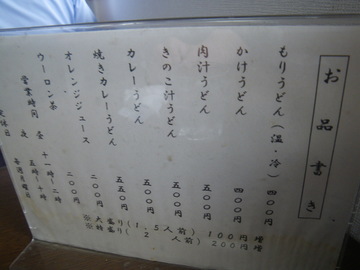 お品書き
もりうどん（温・冷） 四〇〇円
かけうどん 四〇〇円
肉汁うどん 五〇〇円
きのこ汁うどん 五〇〇円
カレーうどん 五五〇円
焼きカレーうどん 五五〇円
オレンジジュース 二〇〇円
ウーロン茶 二〇〇円
営業時間 昼 十一時〜二時
夜 五時〜十時
定休日 毎週月曜日
※大盛り（1.5人前）100円増
※特盛り（2人前）200円増